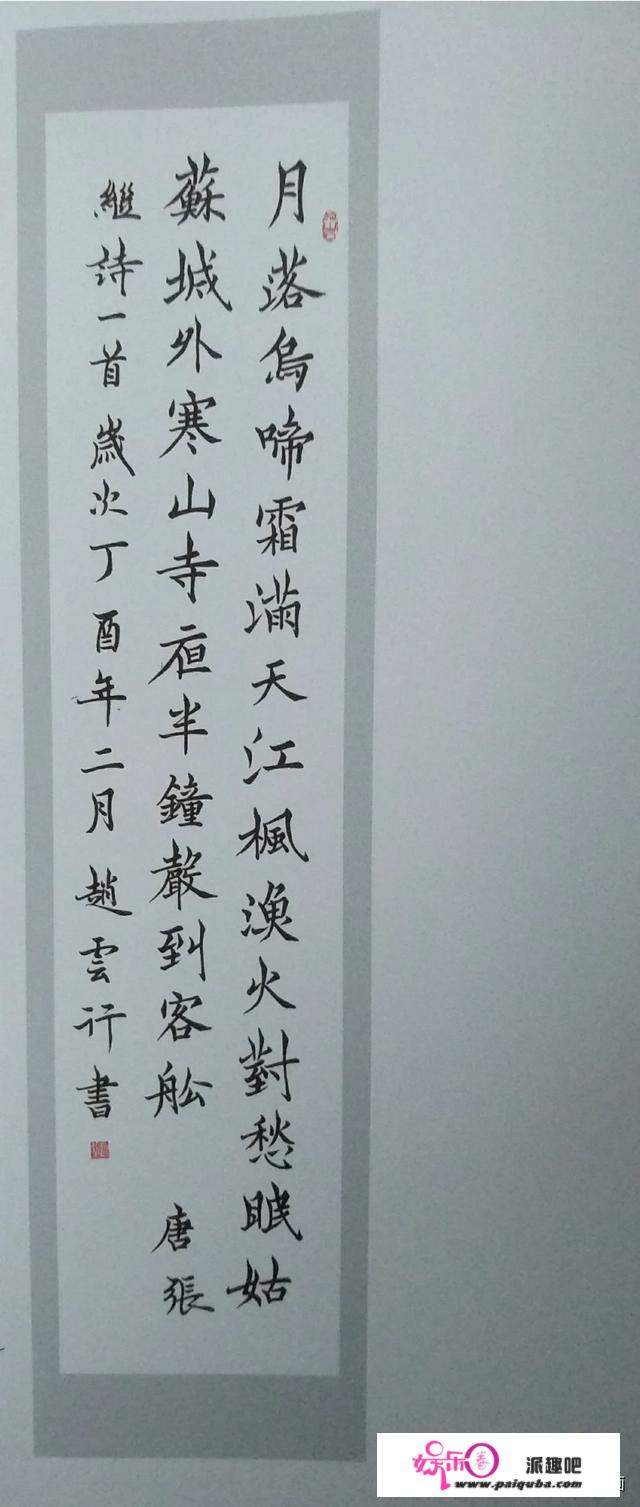 月落烏啼霜滿天江楓漁火對愁眠姑
蘇城外寒山寺夜半鐘聲到客舩 唐張
繼詩一首歲次丁酉年二月趙雲行書
娱乐圈 派趣吧
www.paiquba.com